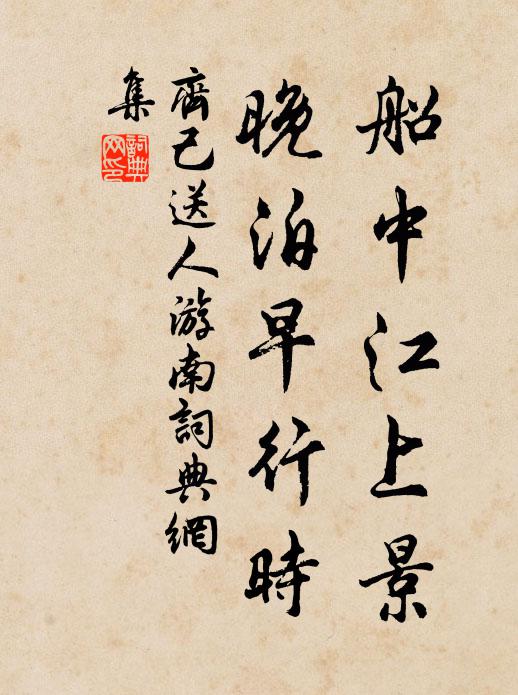 船中江上景
晚泊早行時
齊己送人游南詞典網
集
詞典
网印